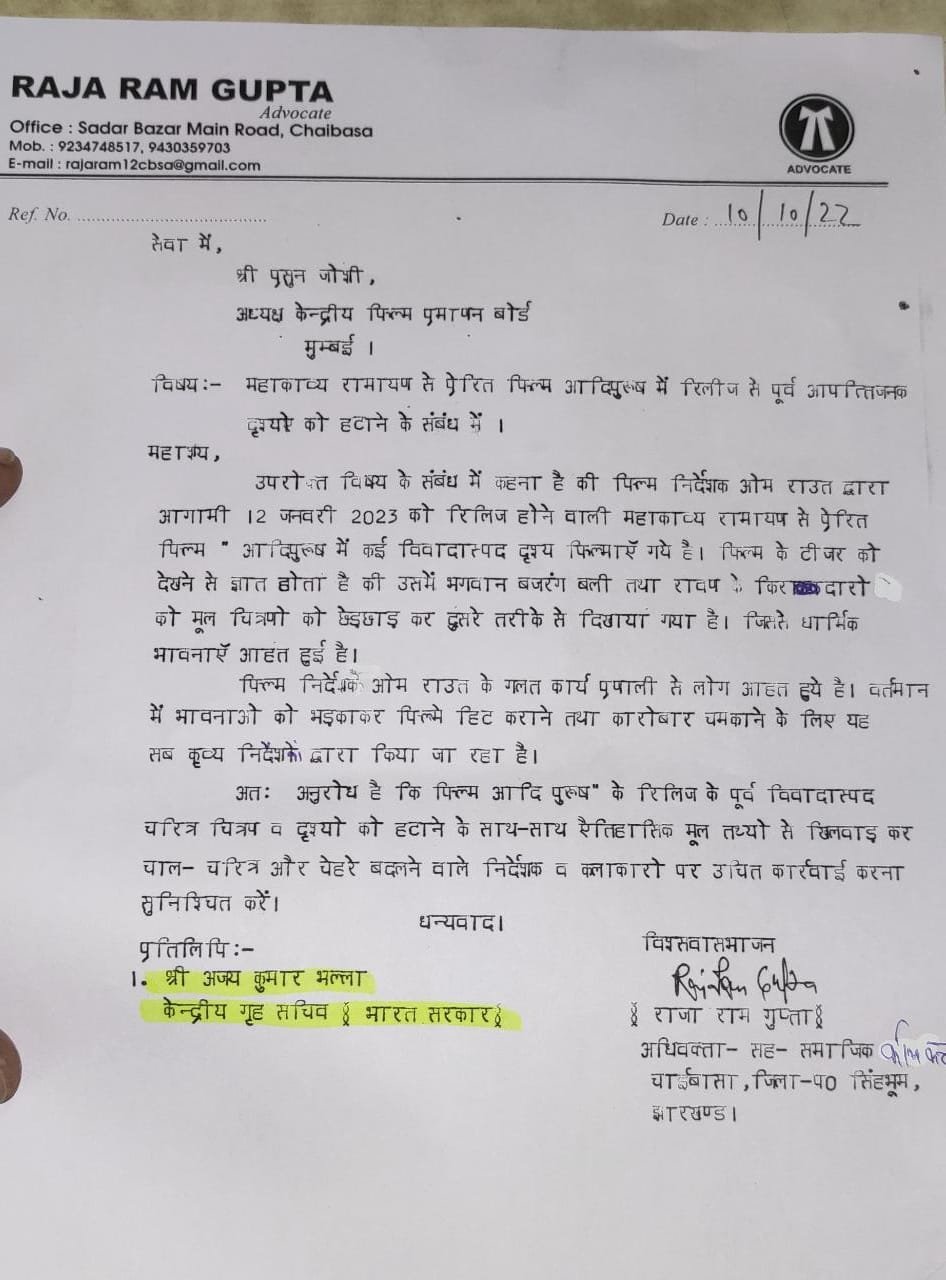 RAJA RAM GUPTA
Advocate
Office : Sadar Bazar Main Road, Chaibasa
Mob. : 9234748517, 9430359703
E-mail : rajaram12cbsa@gmail.com
ADVOCATE
Ref. No. ......................................
Date : 10/10/22
सेवा में,
श्री प्रसुन जोशी,
अध्यक्ष केन्द्रीय फिल्म प्रमापन बोर्ड
मुम्बई ।
विषय:- महाकाव्य रामायण से प्रेरित फिल्म आदिपुरूष में रिलीज से पूर्व आपत्तिजनक
दृश्यों को हटाने के संबंध में ।
महाशय,
उपरोक्त विषय के संबंध में कहना है की फिल्म निर्देशक ओम राउत द्वारा
आगामी 12 जनवरी 2023 को रिलिज होने वाली महाकाव्य रामायण से प्रेरित
फिल्म " आदिपुरूष में कई विवादास्पद दृश्य फिल्माएँ गये है। फिल्म के टीजर को
देखने से ज्ञात होता है की उसमें भगवान बजरंग बली तथा रावण के किरदारो
को मूल चित्रणो को छेड़छाड़ कर दुसरे तरीके से दिखाया गया है। जिससे धार्मिक
भावनाएँ आहत हुई है।
फिल्म निर्देशक ओम राउत के गलत कार्य प्रणाली से लोग आहत हुये है। वर्तमान
में भावनाओ को भड़काकर फिल्मे हिट कराने तथा कारोबार चमकाने के लिए यह
सब कृव्य निर्देशकों द्वारा किया जा रहा है।
अतः अनुरोध है कि फिल्म आदि पुरूष" के रिलिज के पूर्व विवादास्पद
चरित्र चित्रण व दृश्यो को हटाने के साथ-साथ ऐतिहासिक मूल तथ्यो से खिलवाड़ कर
चाल- चरित्र और चेहरे बदलने वाले निर्देशक व कलाकारो पर उचित कार्रवाई करना
सुनिश्चित करें।
धन्यवाद।
प्रतिलिपि:-
विश्सवासभाजन
1. श्री अजय कुमार भल्ला
Raja Ram Gupta
केन्द्रीय गृह सचिव भारत सरकार
राजा राम गुप्ता
अधिवक्ता- सह- समाजिक
चाईबासा, जिला-प0 सिंहभूम,
झारखण्ड।